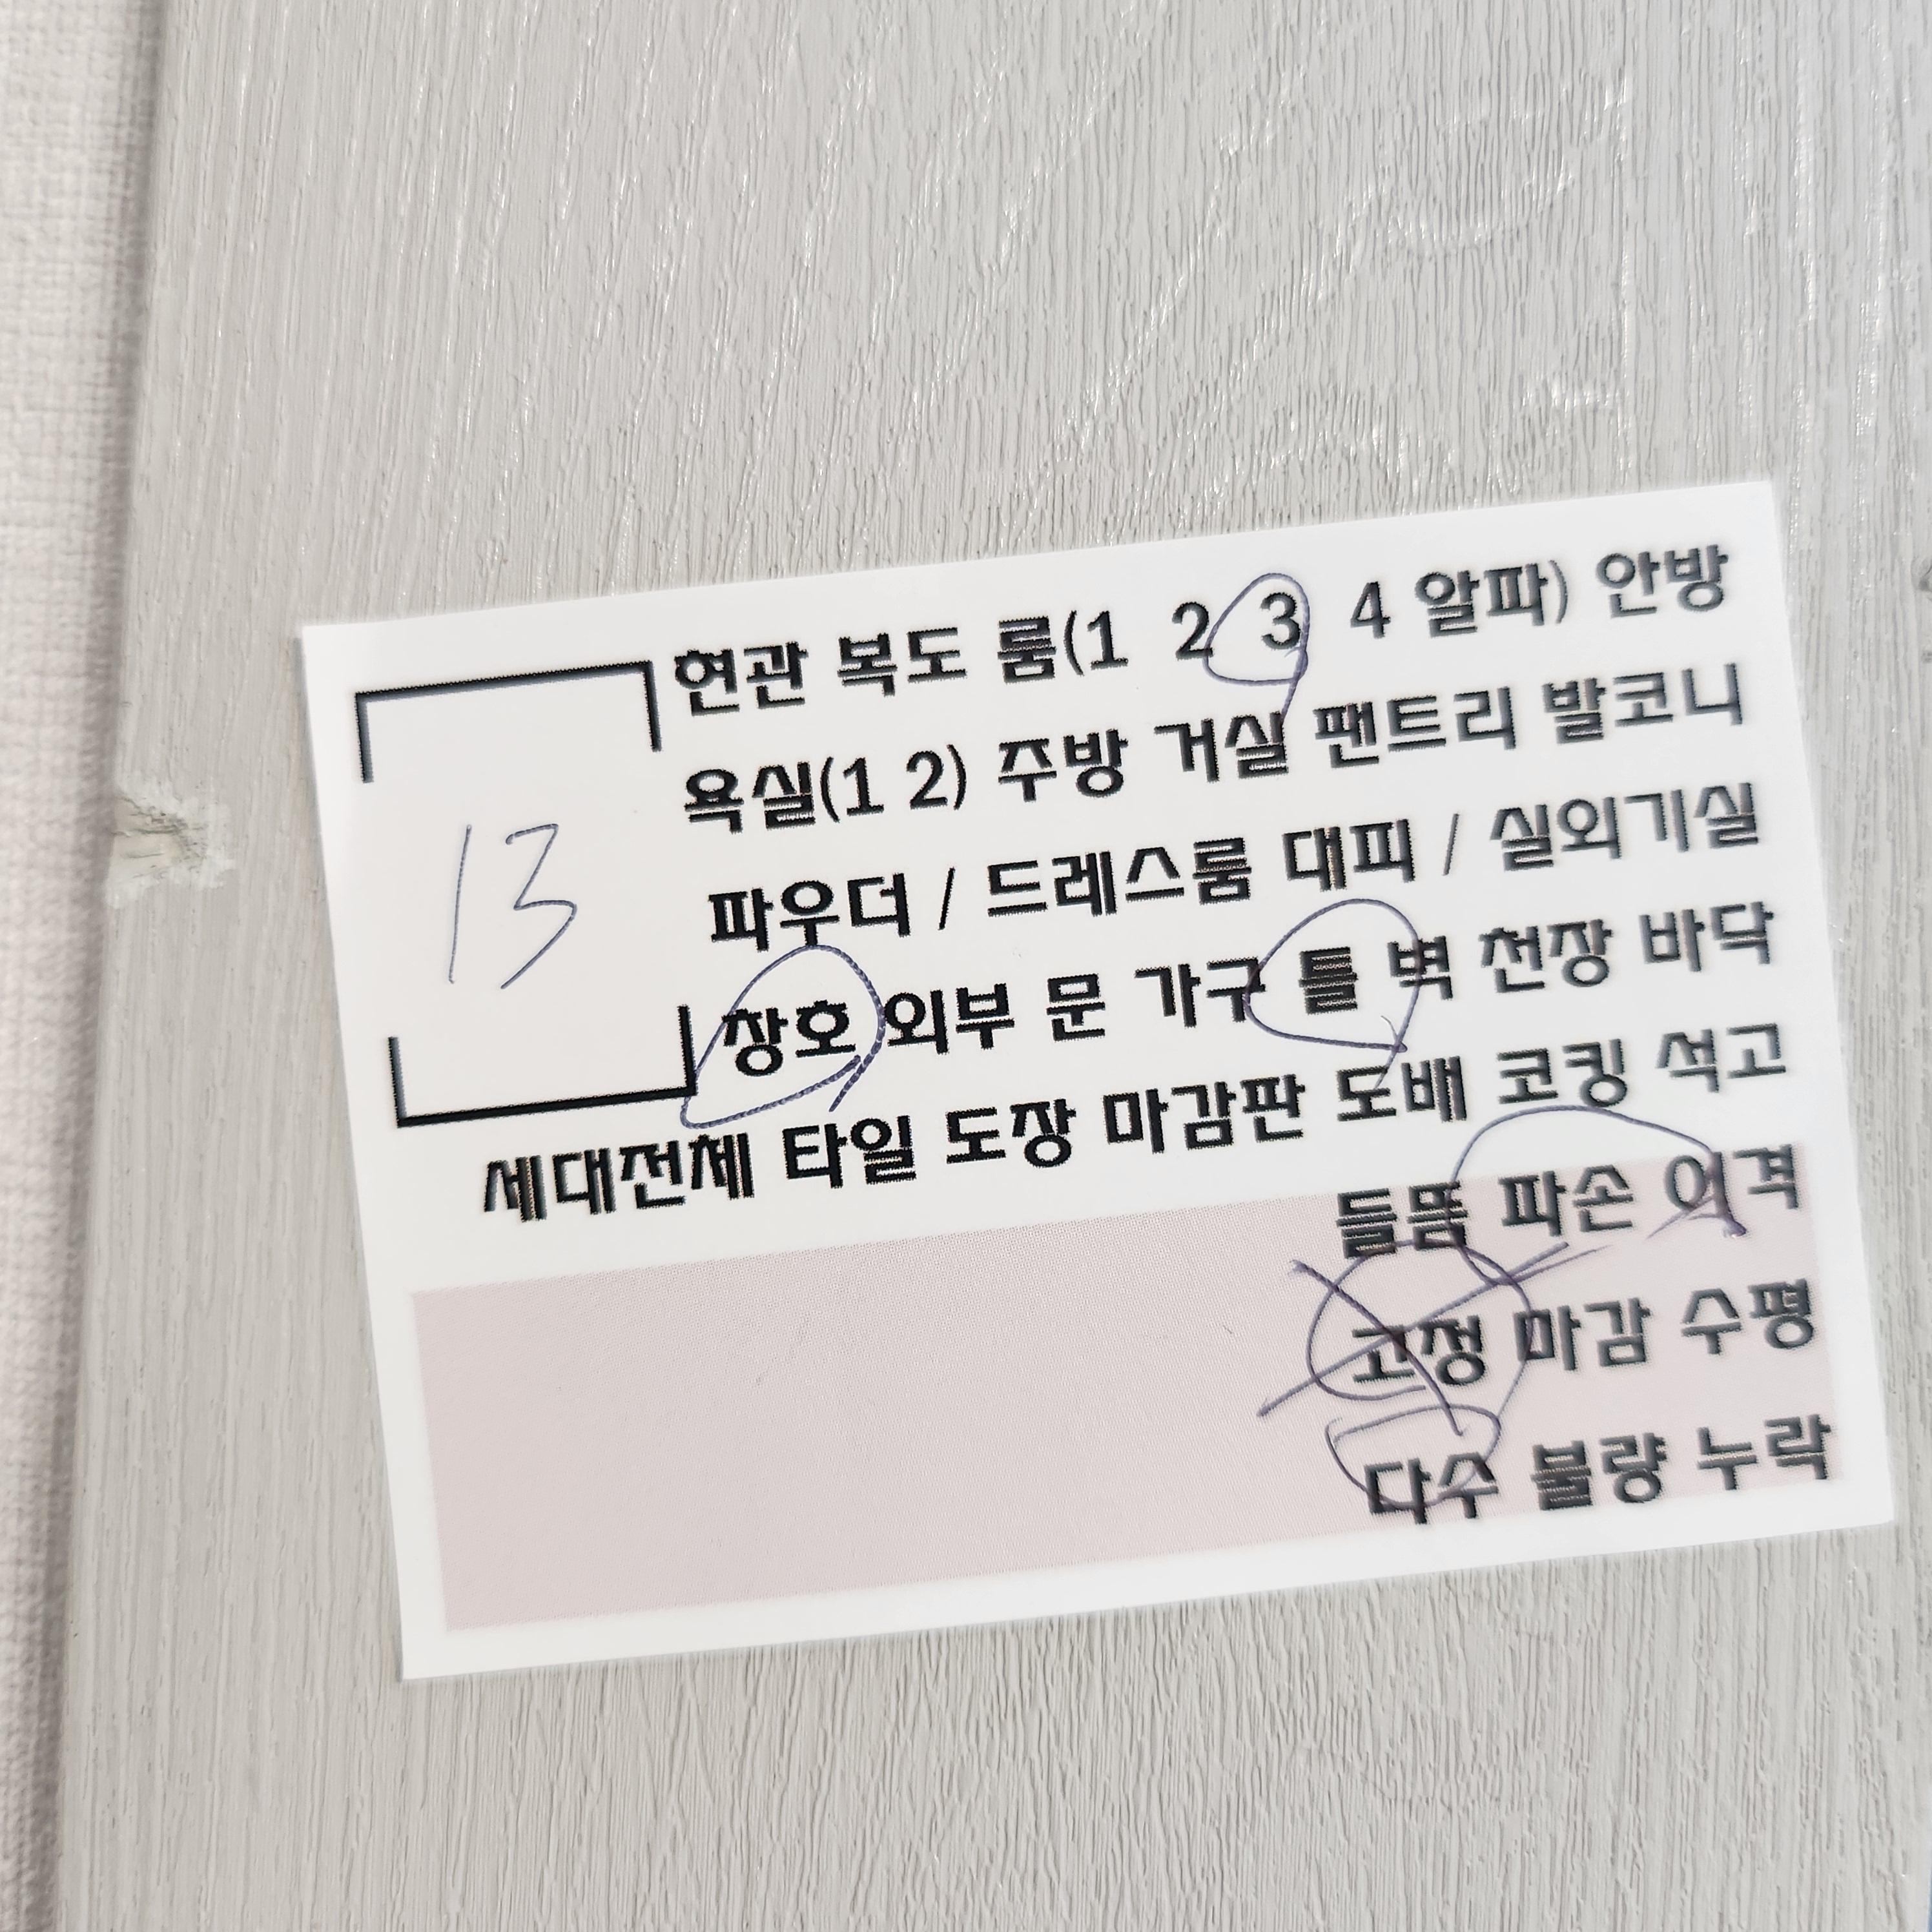 현관 복도 룸(1 2 3 4 알파) 안방
욕실(1 2) 주방 거실 팬트리 발코니
파우더 / 드레스룸 대피 / 실외기실
13
창호 외부 문 가구 틀 벽 천장 바닥
세대전체 타일 도장 마감판 도배 코킹 석고
들뜸 파손 이격
고정 마감 수평
다수 불량 누락